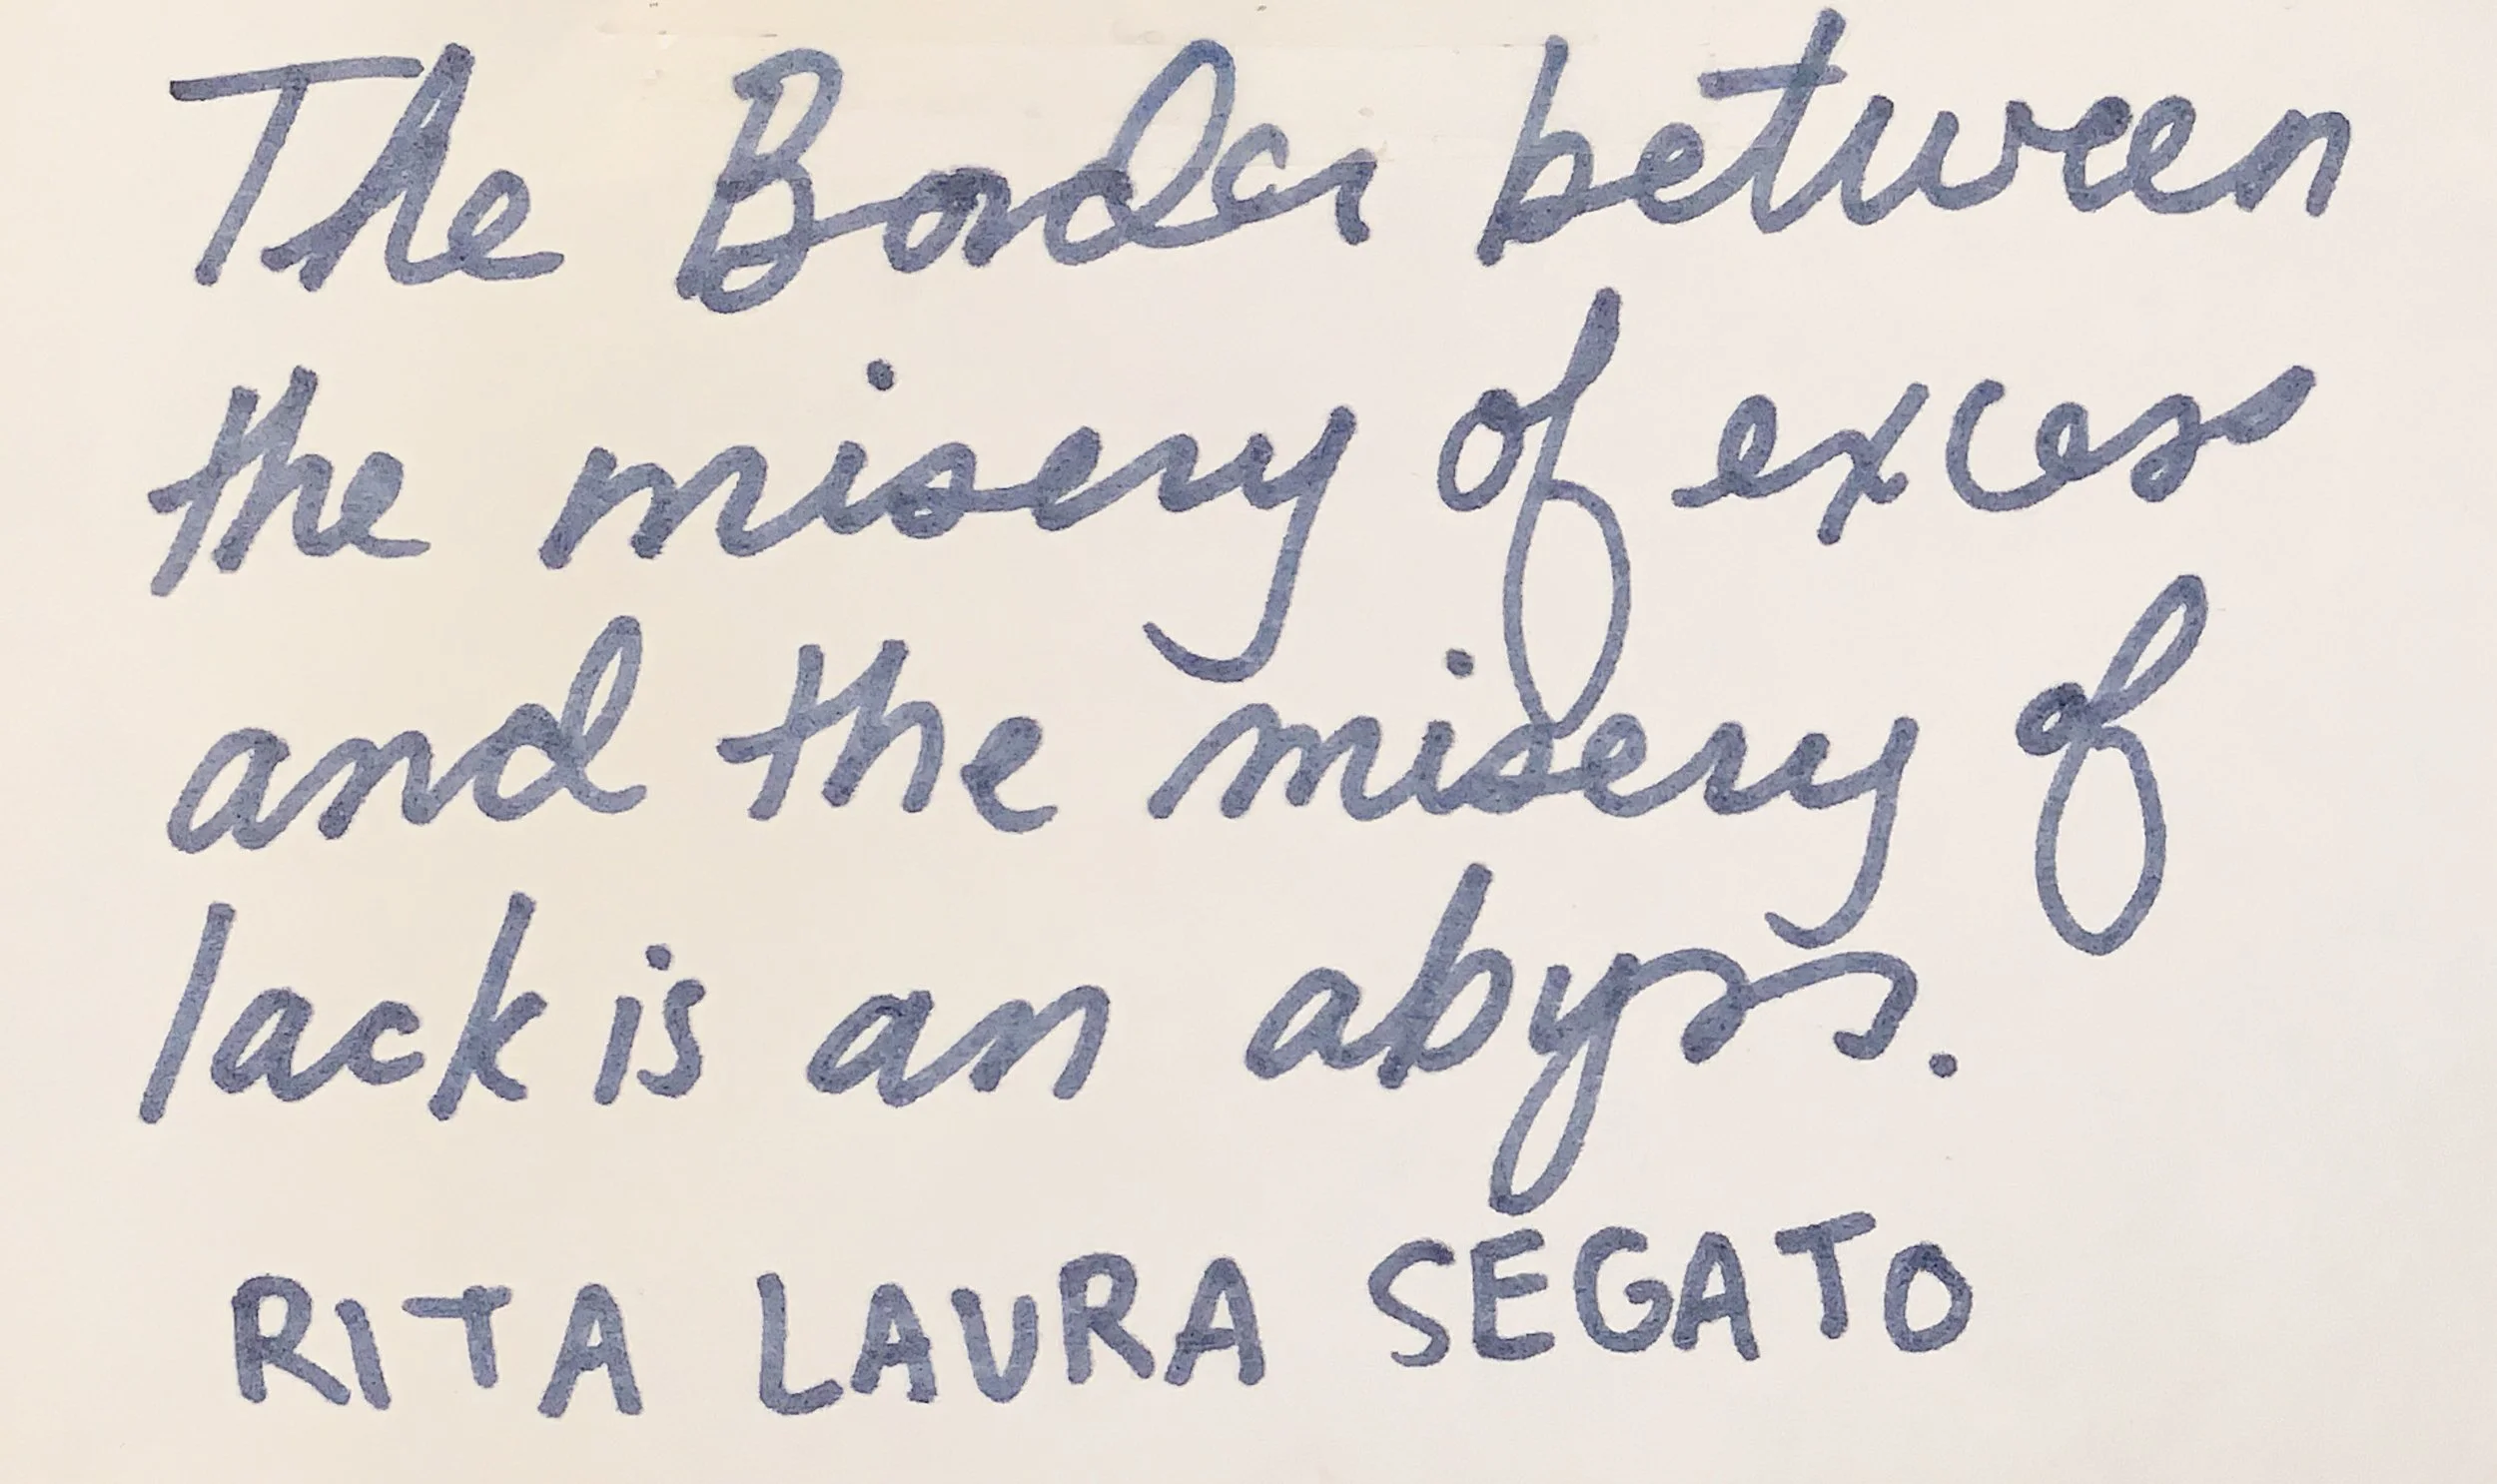 The Border between
the misery of excess
and the misery of
lack is an abyss.
RITA LAURA SEGATO